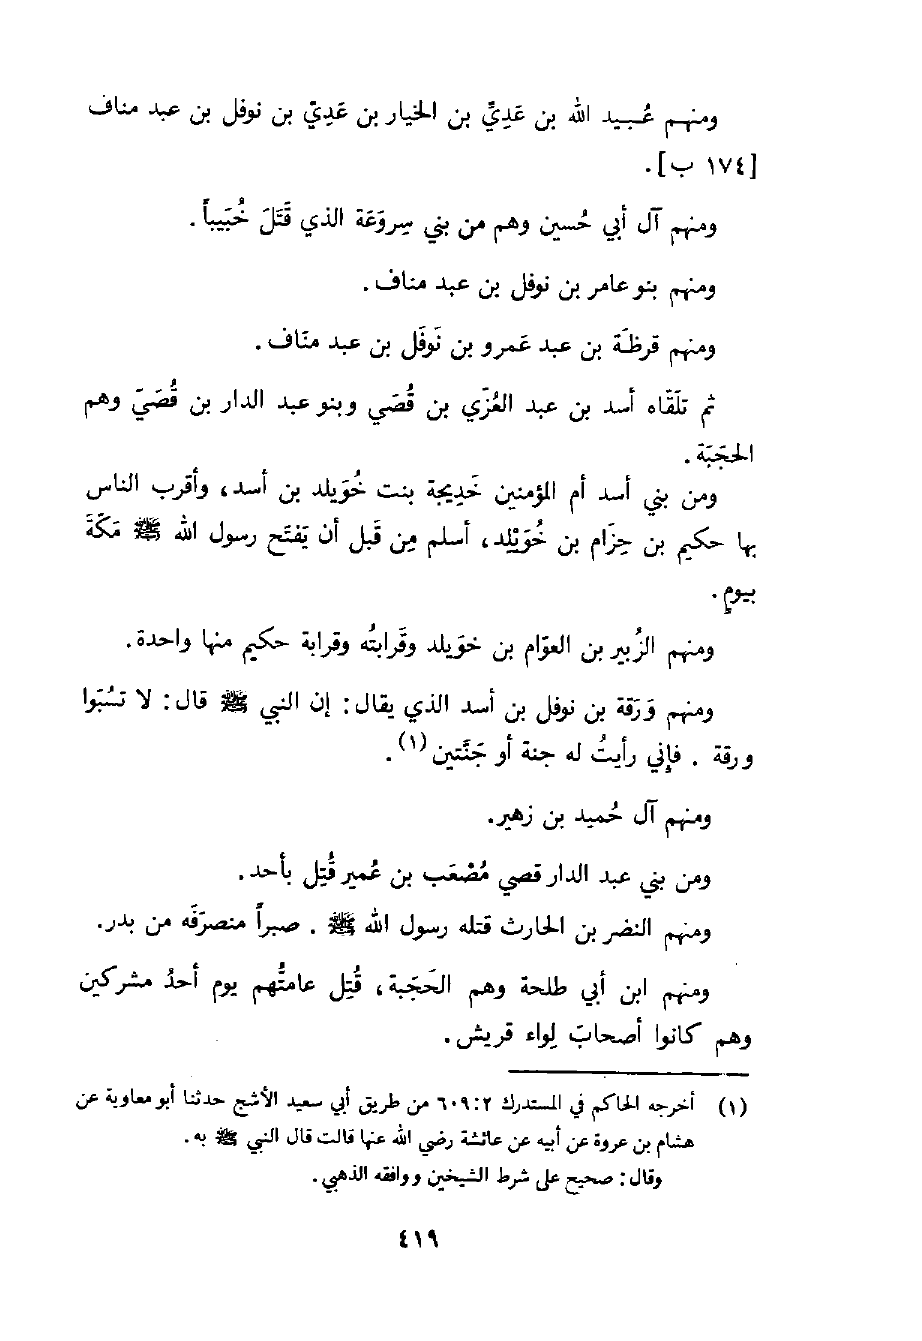 ومنهم عُبيد الله بن عَدِيِّ بن الخيار بن عَدِيّ بن نوفل بن عبد مناف
[١٧٤ ب].
ومنهم آل أبي حُسين وهم من بني سِروَعَة الذي قَتَلَ خُبَيباً.
ومنهم بنو عامر بن نوفل بن عبد مناف.
ومنهم قرظَة بن عبد عَمرو بن نَوفَل بن عبد منَاف.
ثم تلَقّاه أسد بن عبد العُزّي بن قُصَي وبنو عبد الدار بن قُصَيّ وهم
الحجَبَة.
ومن بني أسد أم المؤمنين خَدِيجة بنت خُوَيلد بن أسد، وأقرب الناس
بها حكيم بن حِزَام بن خُوَيْلد، أسلم مِن قَبل أن يَفتَح رسول الله ﷺ مَكّةَ
بيومٍ.
ومنهم الزُبير بن العوّام بن خوَيلد وقَرابتُه وقرابة حكيم منها واحدة.
ومنهم وَرَقة بن نوفل بن أسد الذي يقال: إن النبي ﷺ قال: لا تسُبّوا
ورقة . فإني رأيتُ له جنة أو جَنَّتين(١).
ومنهم آل حُميد بن زهير.
ومن بني عبد الدار قصي مُصْعَب بن عُمير قُتِل بأحد.
ومنهم النضر بن الحارث قتله رسول الله ﷺ . صبراً منصرَفَه من بدر.
ومنهم ابن أبي طلحة وهم الحَجَبة، قُتِل عامتُّهم يوم أحدُ مشركين
وهم كانوا أصحابَ لِواء قريش.
(١) أخرجه الحاكم في المستدرك ٢:٦٠٩ من طريق أبي سعيد الأشج حدثنا أبو معاوية عن
هشام بن عروة عن أبيه عن عائشة رضي الله عنها قالت قال النبي ﷺ به.
وقال: صحيح على شرط الشيخين ووافقه الذهبي.
٤١٩